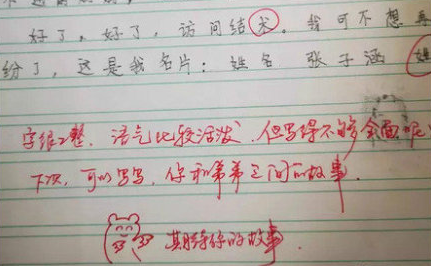 好了，好了，访问结术。我可不想再
纷了，这是我名片：姓名 张子涵
字很工整，语气比较活泼，但写得不够全面呢
下次，可以写写，你和弟弟之间的故事。
期待你的故事。